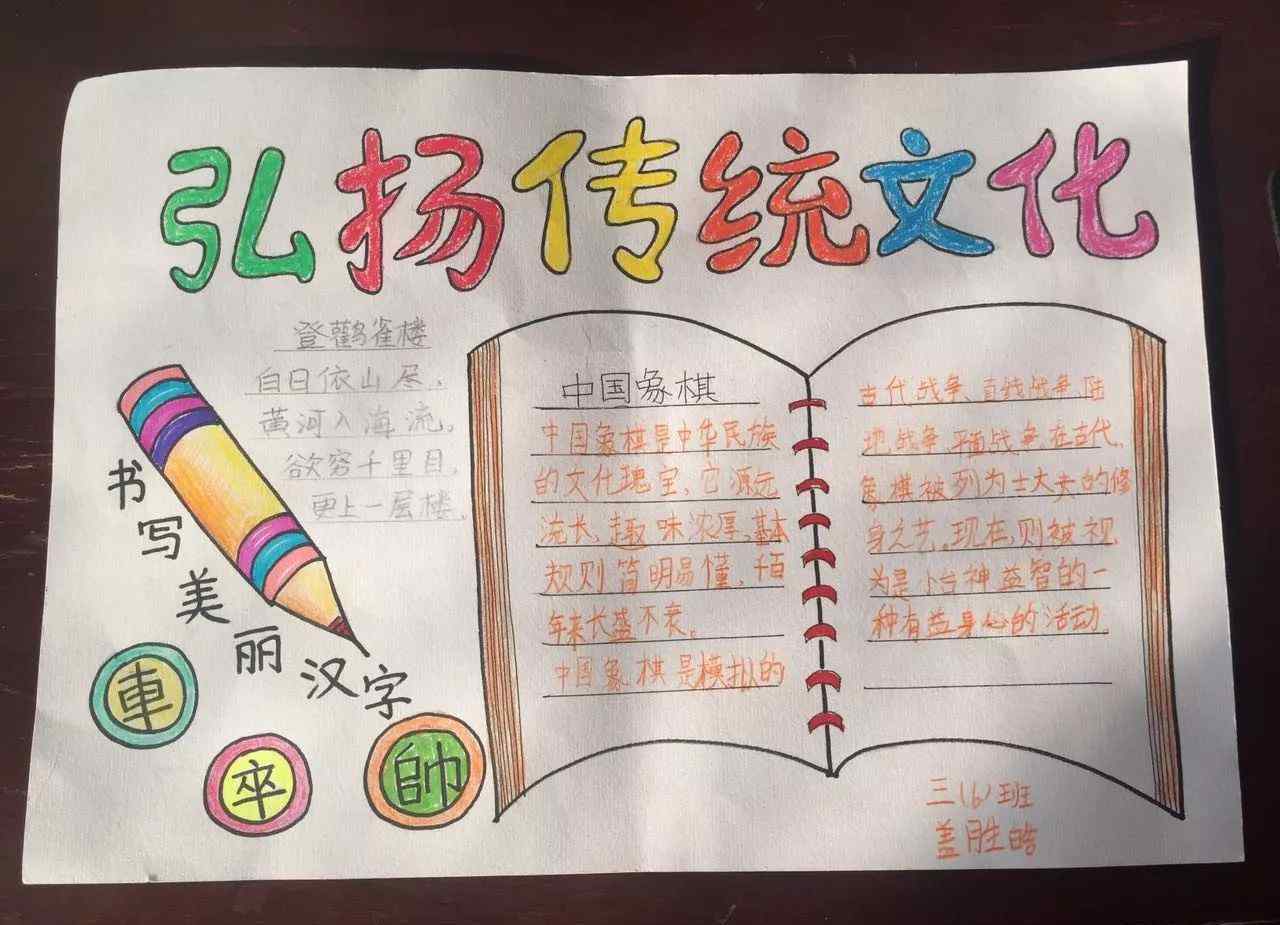 弘扬传统文化
登鹳雀楼
白日依山尽,
黄河入海流。
欲穷千里目,
更上一层楼。
书写美丽汉字
車
卒
帥
中国象棋
中国象棋是中华民族
的文化瑰宝,它源远
流长,趣味浓厚,基本
规则简明易懂,千百
年来长盛不衰。
中国象棋是模拟的
古代战争、直线战争、陆
地战争、平面战争。在古代,
象棋被列为士大夫的修
身之艺。现在,则被视
为是怡神益智的一
种有益身心的活动。
三(6)班
盖胜皓